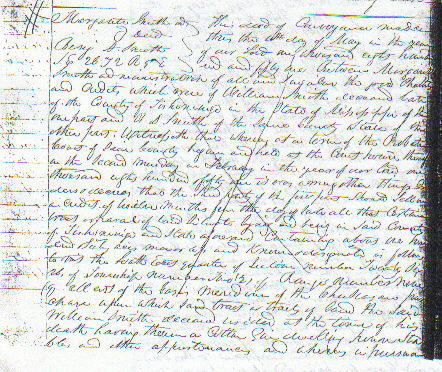 Margarett Smith ad
Deed
Benj D. Smith
This deed of Conveyance made
this the day of May in the year
of our Lord one thousand eight hundred
and fifty one Between Margaret
Smith administration of all and the goods Chattels
and Credits which were of William Smith deceased late
of the County of Tishomingo in the State of Mississippi of the
one part and B D Smith of the Same County State of the
other part. Witnesseth that Whereas at a term of the Probate
Court of Said County begun and held at the Court house thereof
on the Second Monday in February in the year of our Lord one
thousand eight hundred fifty one it was among other things by
decreed that the Said party of the first part Should Sell on
a credit of twelve Months from the day of Sale all that Certain
tract or parcel of land Situate lying and being in Said County
of Tishomingo and State aforesaid Containing about one hun
dred Sixty acres more or less and Known designated as follows
to wit the South West quarter of Section number Twenty Six
of Township number Two of Range number Nine
all east of the basis Meridian of the Chickasaw pur
chase upon which Said tract of land the Said
William Smith deceased resided at the time of his
death having thereon a Cotton Gin dwelling house Sta
bles and other appurtenances and whereas in pursuan